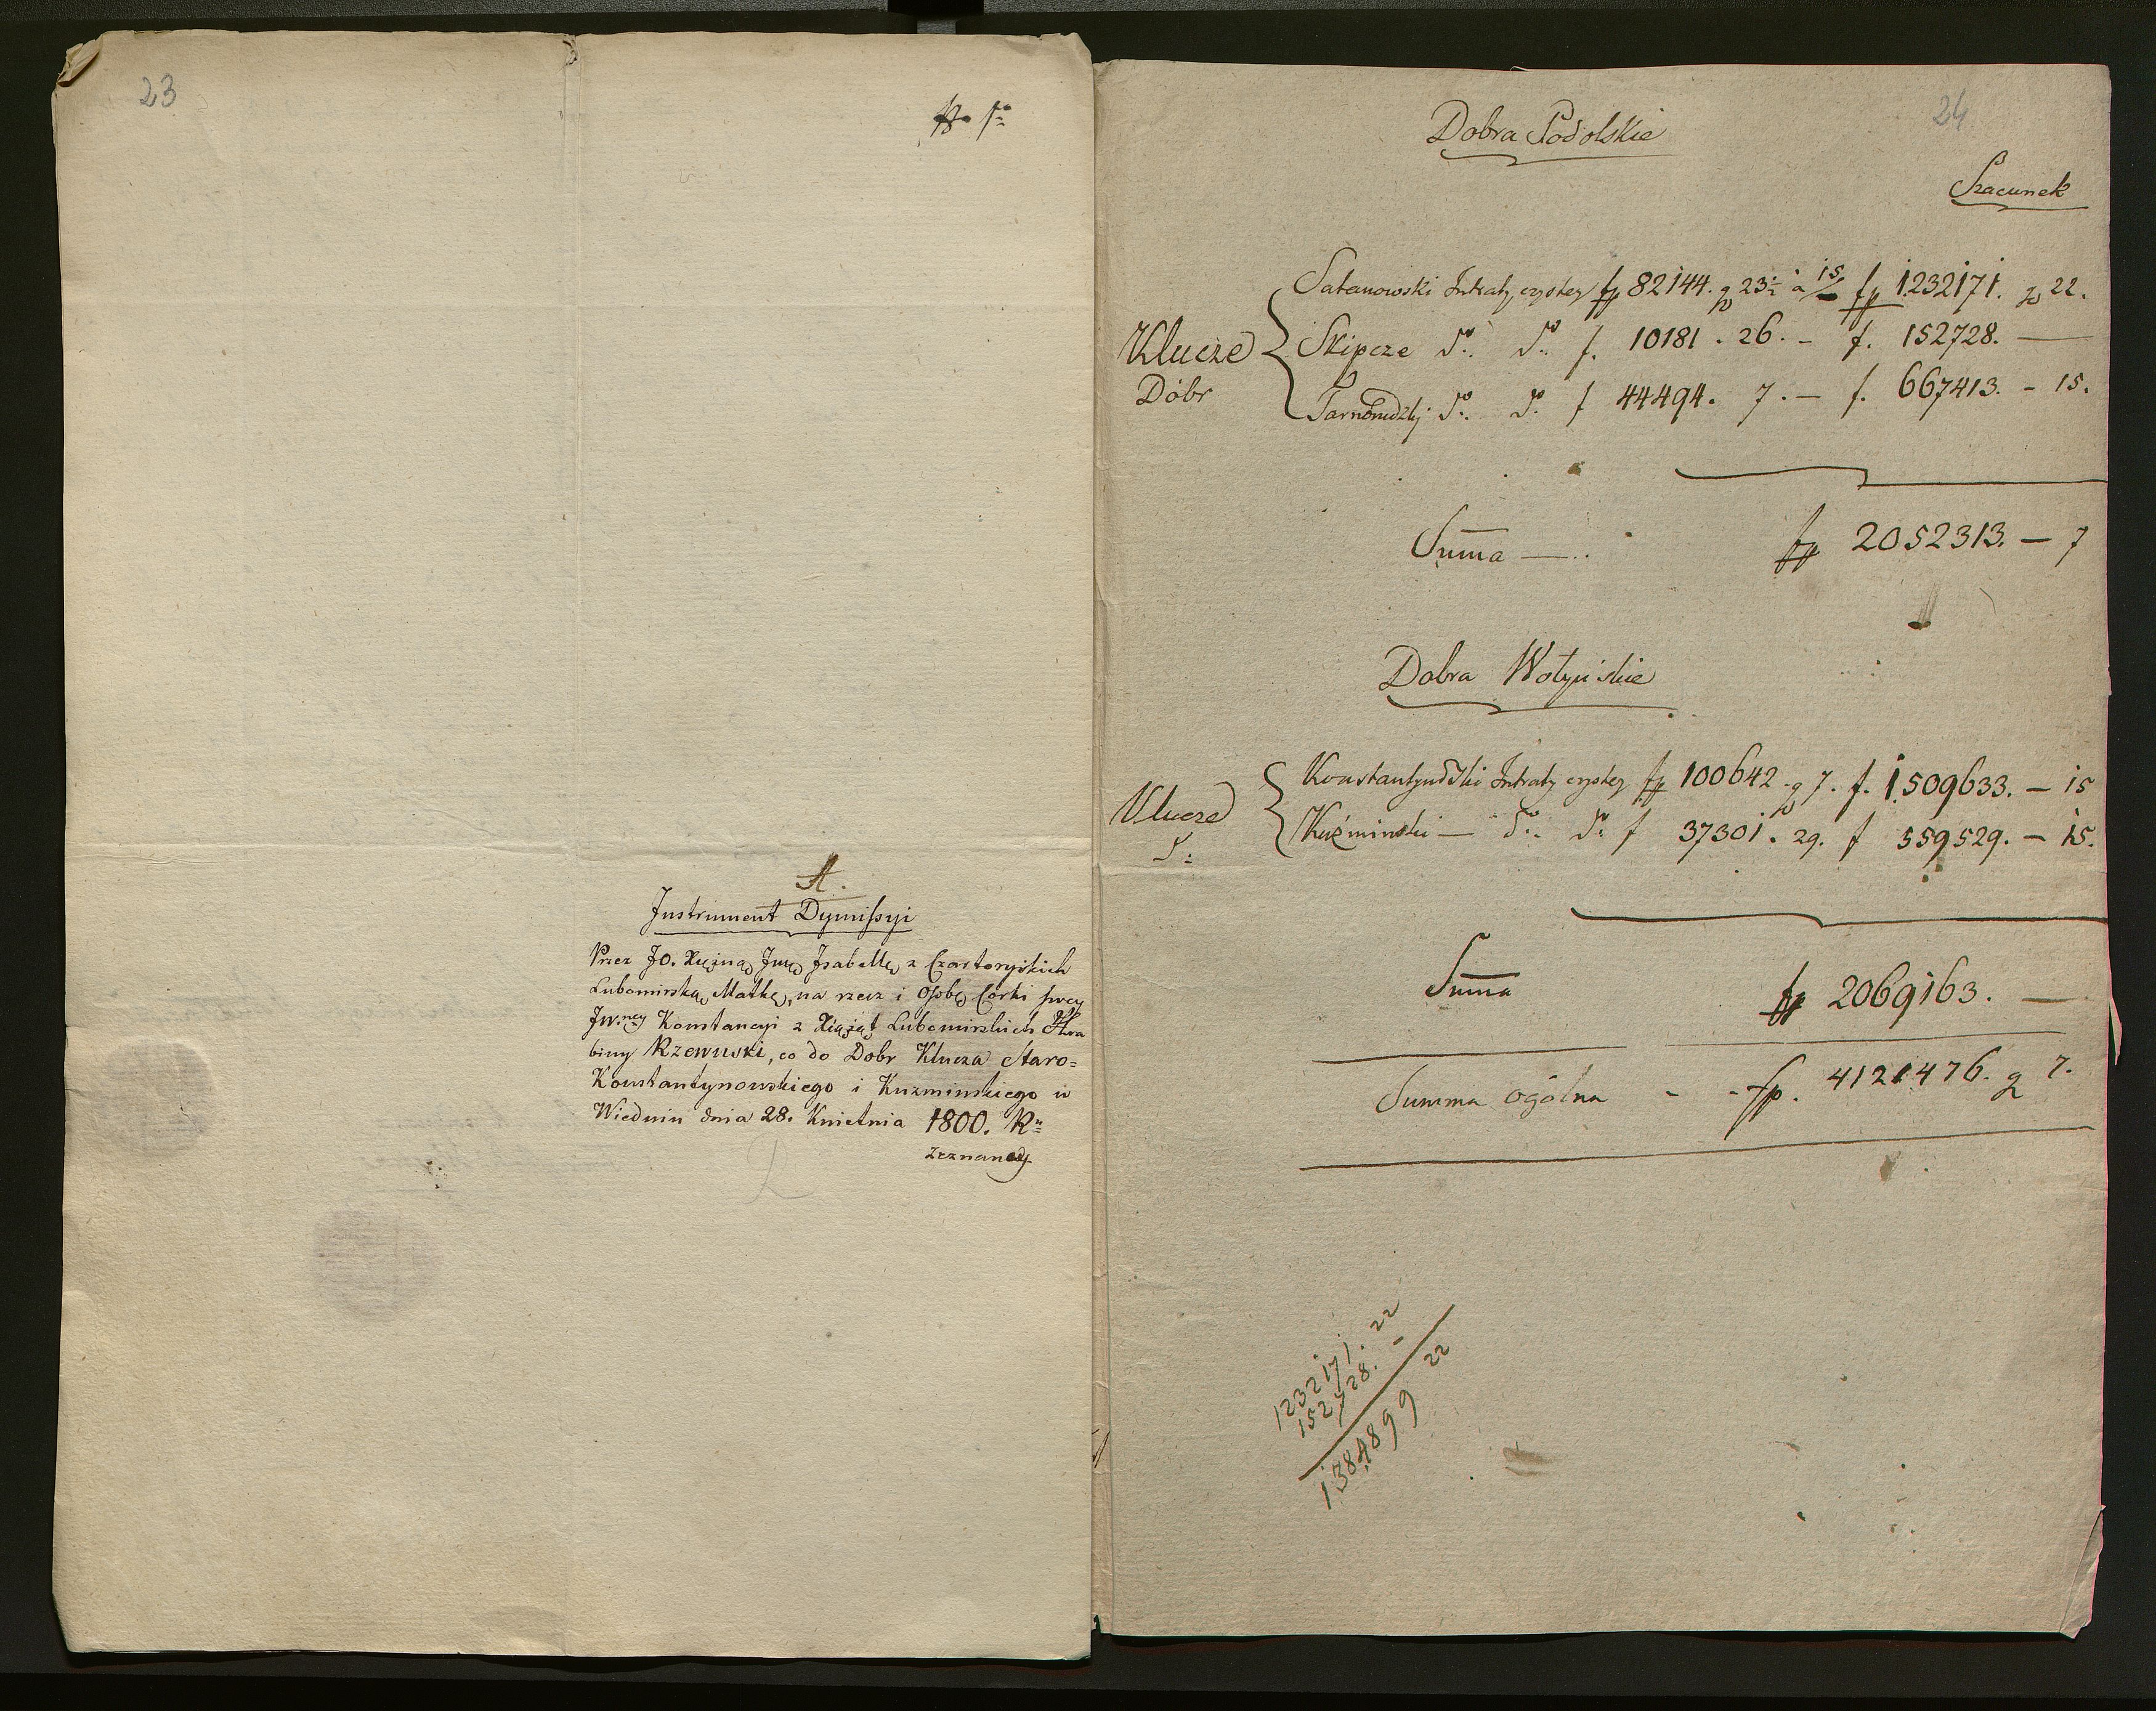 23
A.
Instrument Dymissyi
Przez JO. Xiężnę Jmę Izabellę z Czartoryskich
Lubomirską Matkę, na rzecz i osobę Córki swey
JW.ney Konstancyi z Xiążąt Lubomirskich Hra
biny Rzewuski, co do Dobr Klucza Staro=
Konstantynowskiego i Kuzminskiego w
Wiedniu dnia 28. Kwietnia 1800. R.
zeznany
24
Dobra Podolskie
Szacunek
Klucze Dobr
Satanowski Intraty czystey fp 82144. g 23½ à 15 fp 1232171. g 22.
Skipcze do. do. f. 10181. 26. – f. 152728. —
Tarnorudzki do. do. f 44494. 7. – f. 667413. – 15.
Summa — fp 2052313. – 7
Dobra Wołyńskie
Klucze d:
Konstantynowski Intraty czystey fp 100642 g 7. f. 1509633. – 15
Kuźminski — do. do. f 37301. 29. f 559529. – 15.
Summa fp 2069163. —
Summa ogólna - - fp. 4121476. g 7.
1232171. 22
152728. –
1384899 22